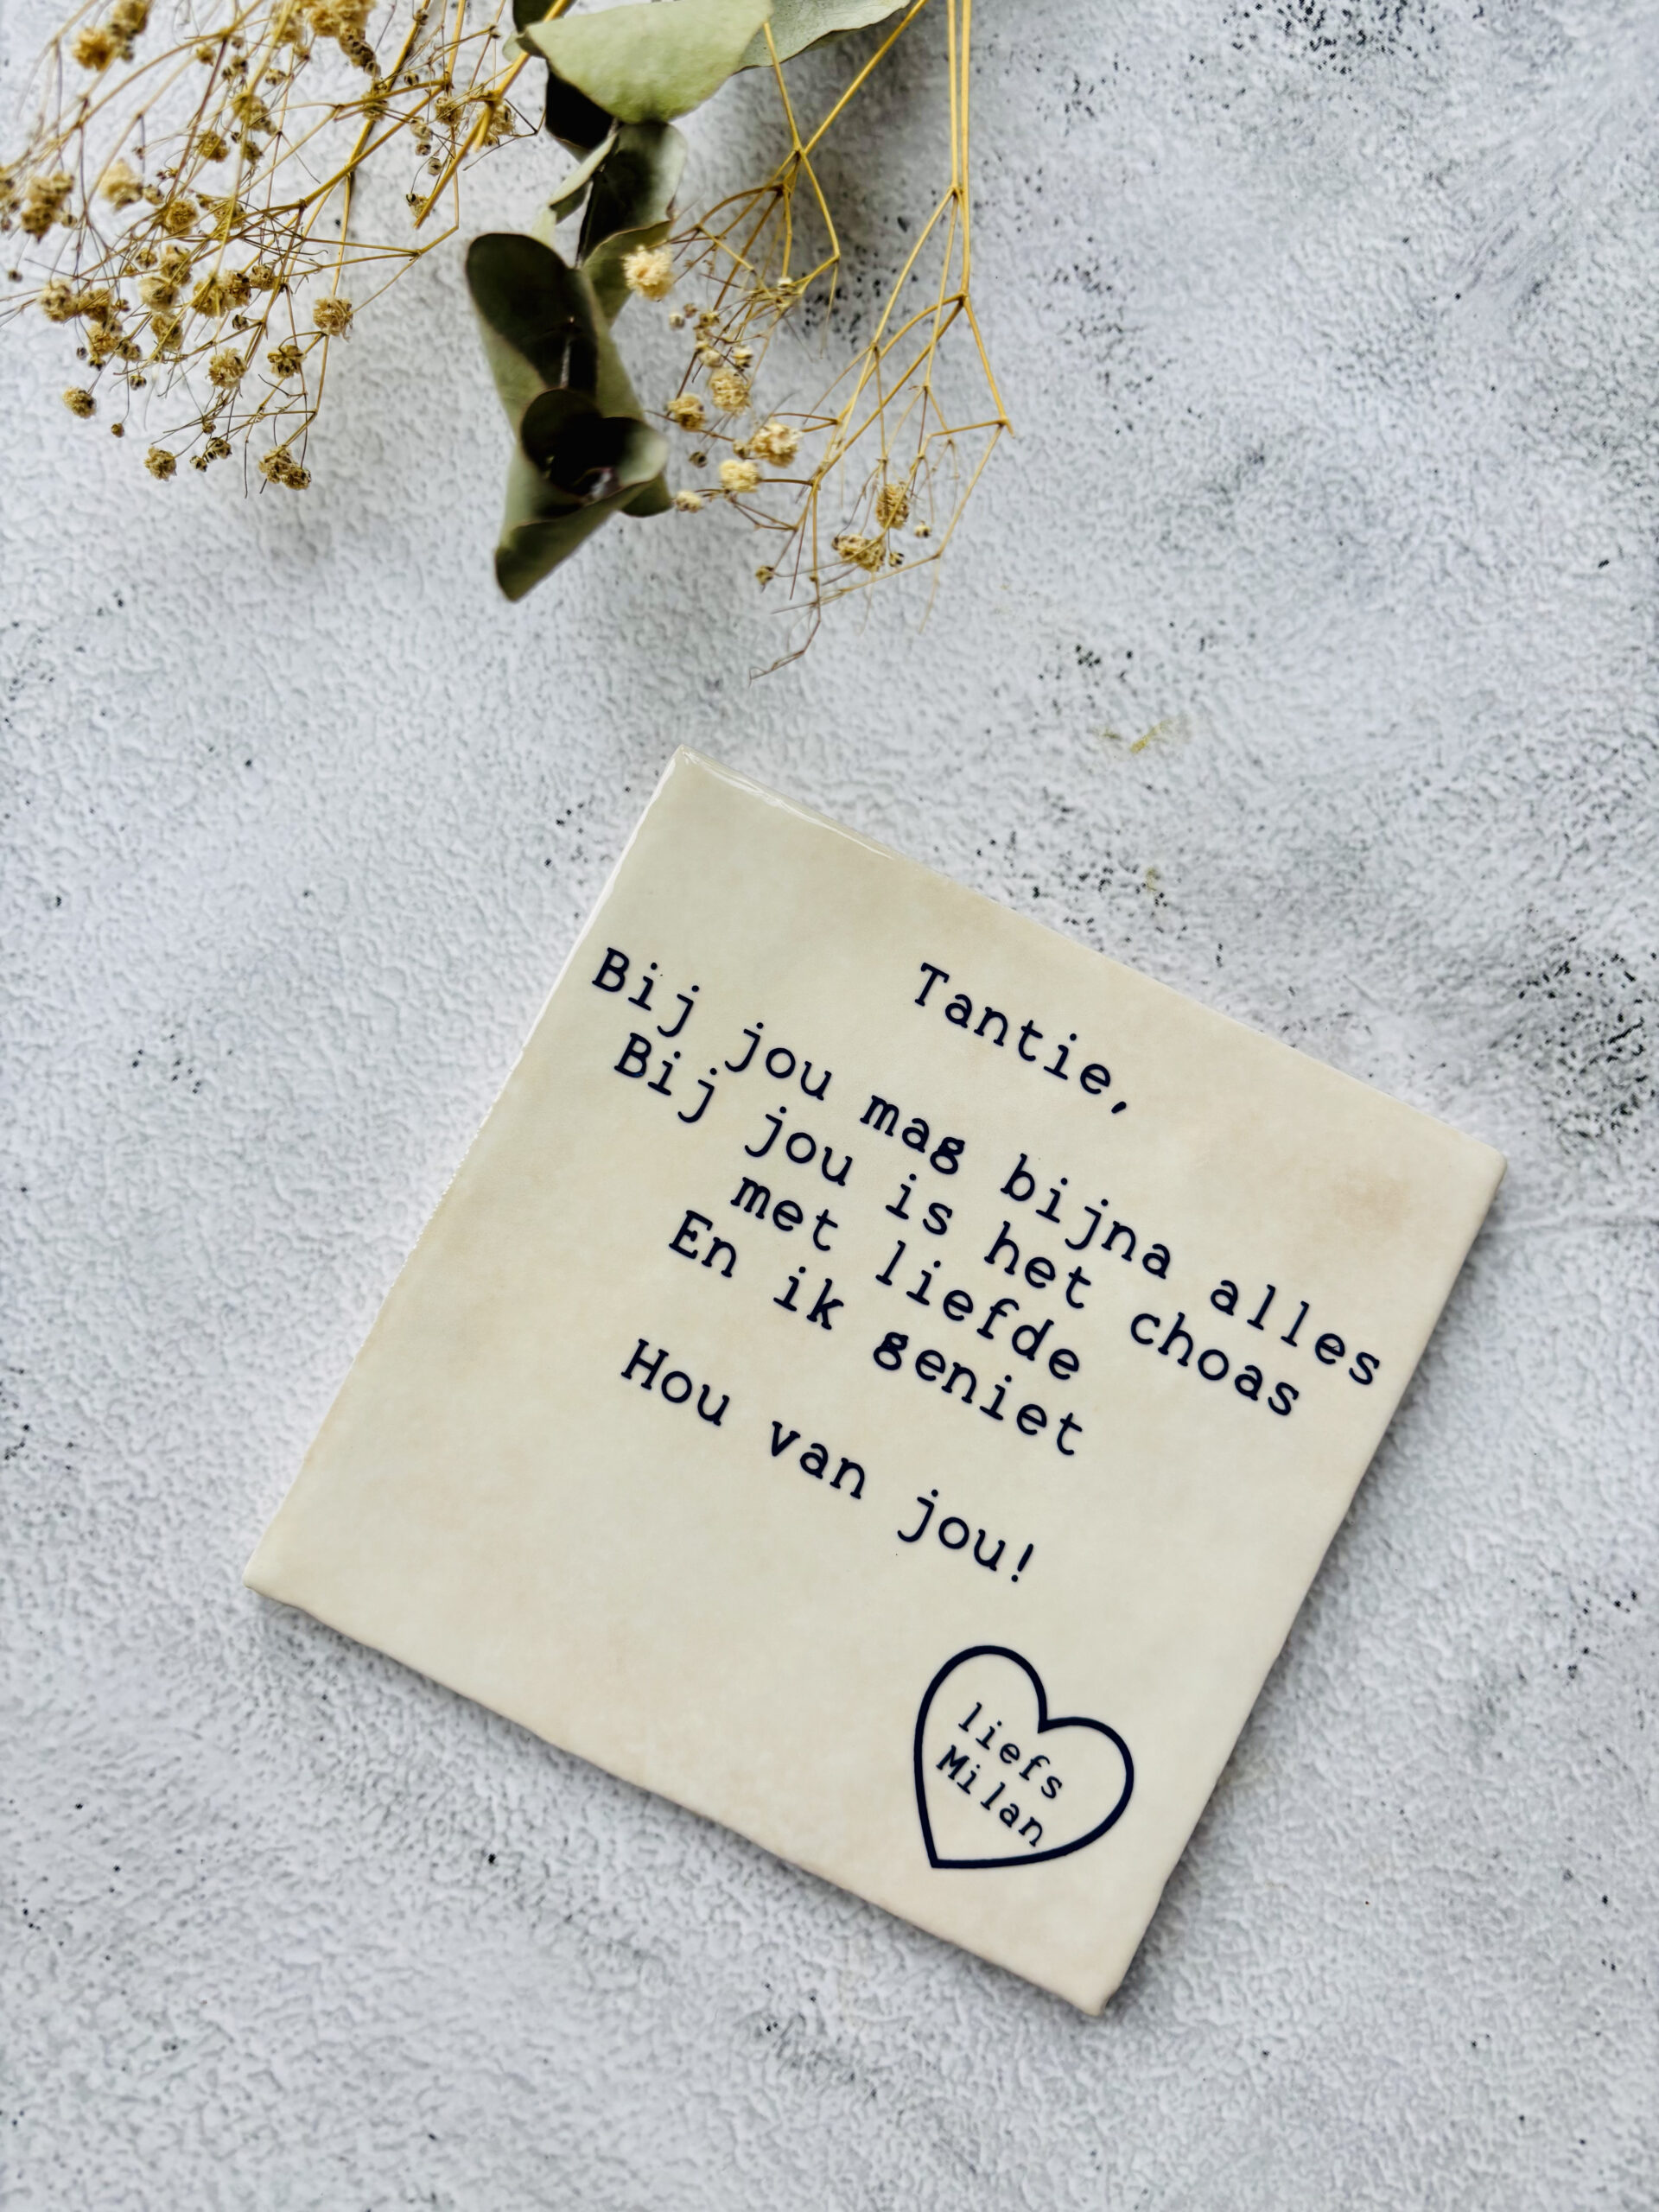 Tantie,
Bij jou mag bijna alles
Bij jou is het choas
met liefde
En ik geniet
Hou van jou!
liefs
Milan